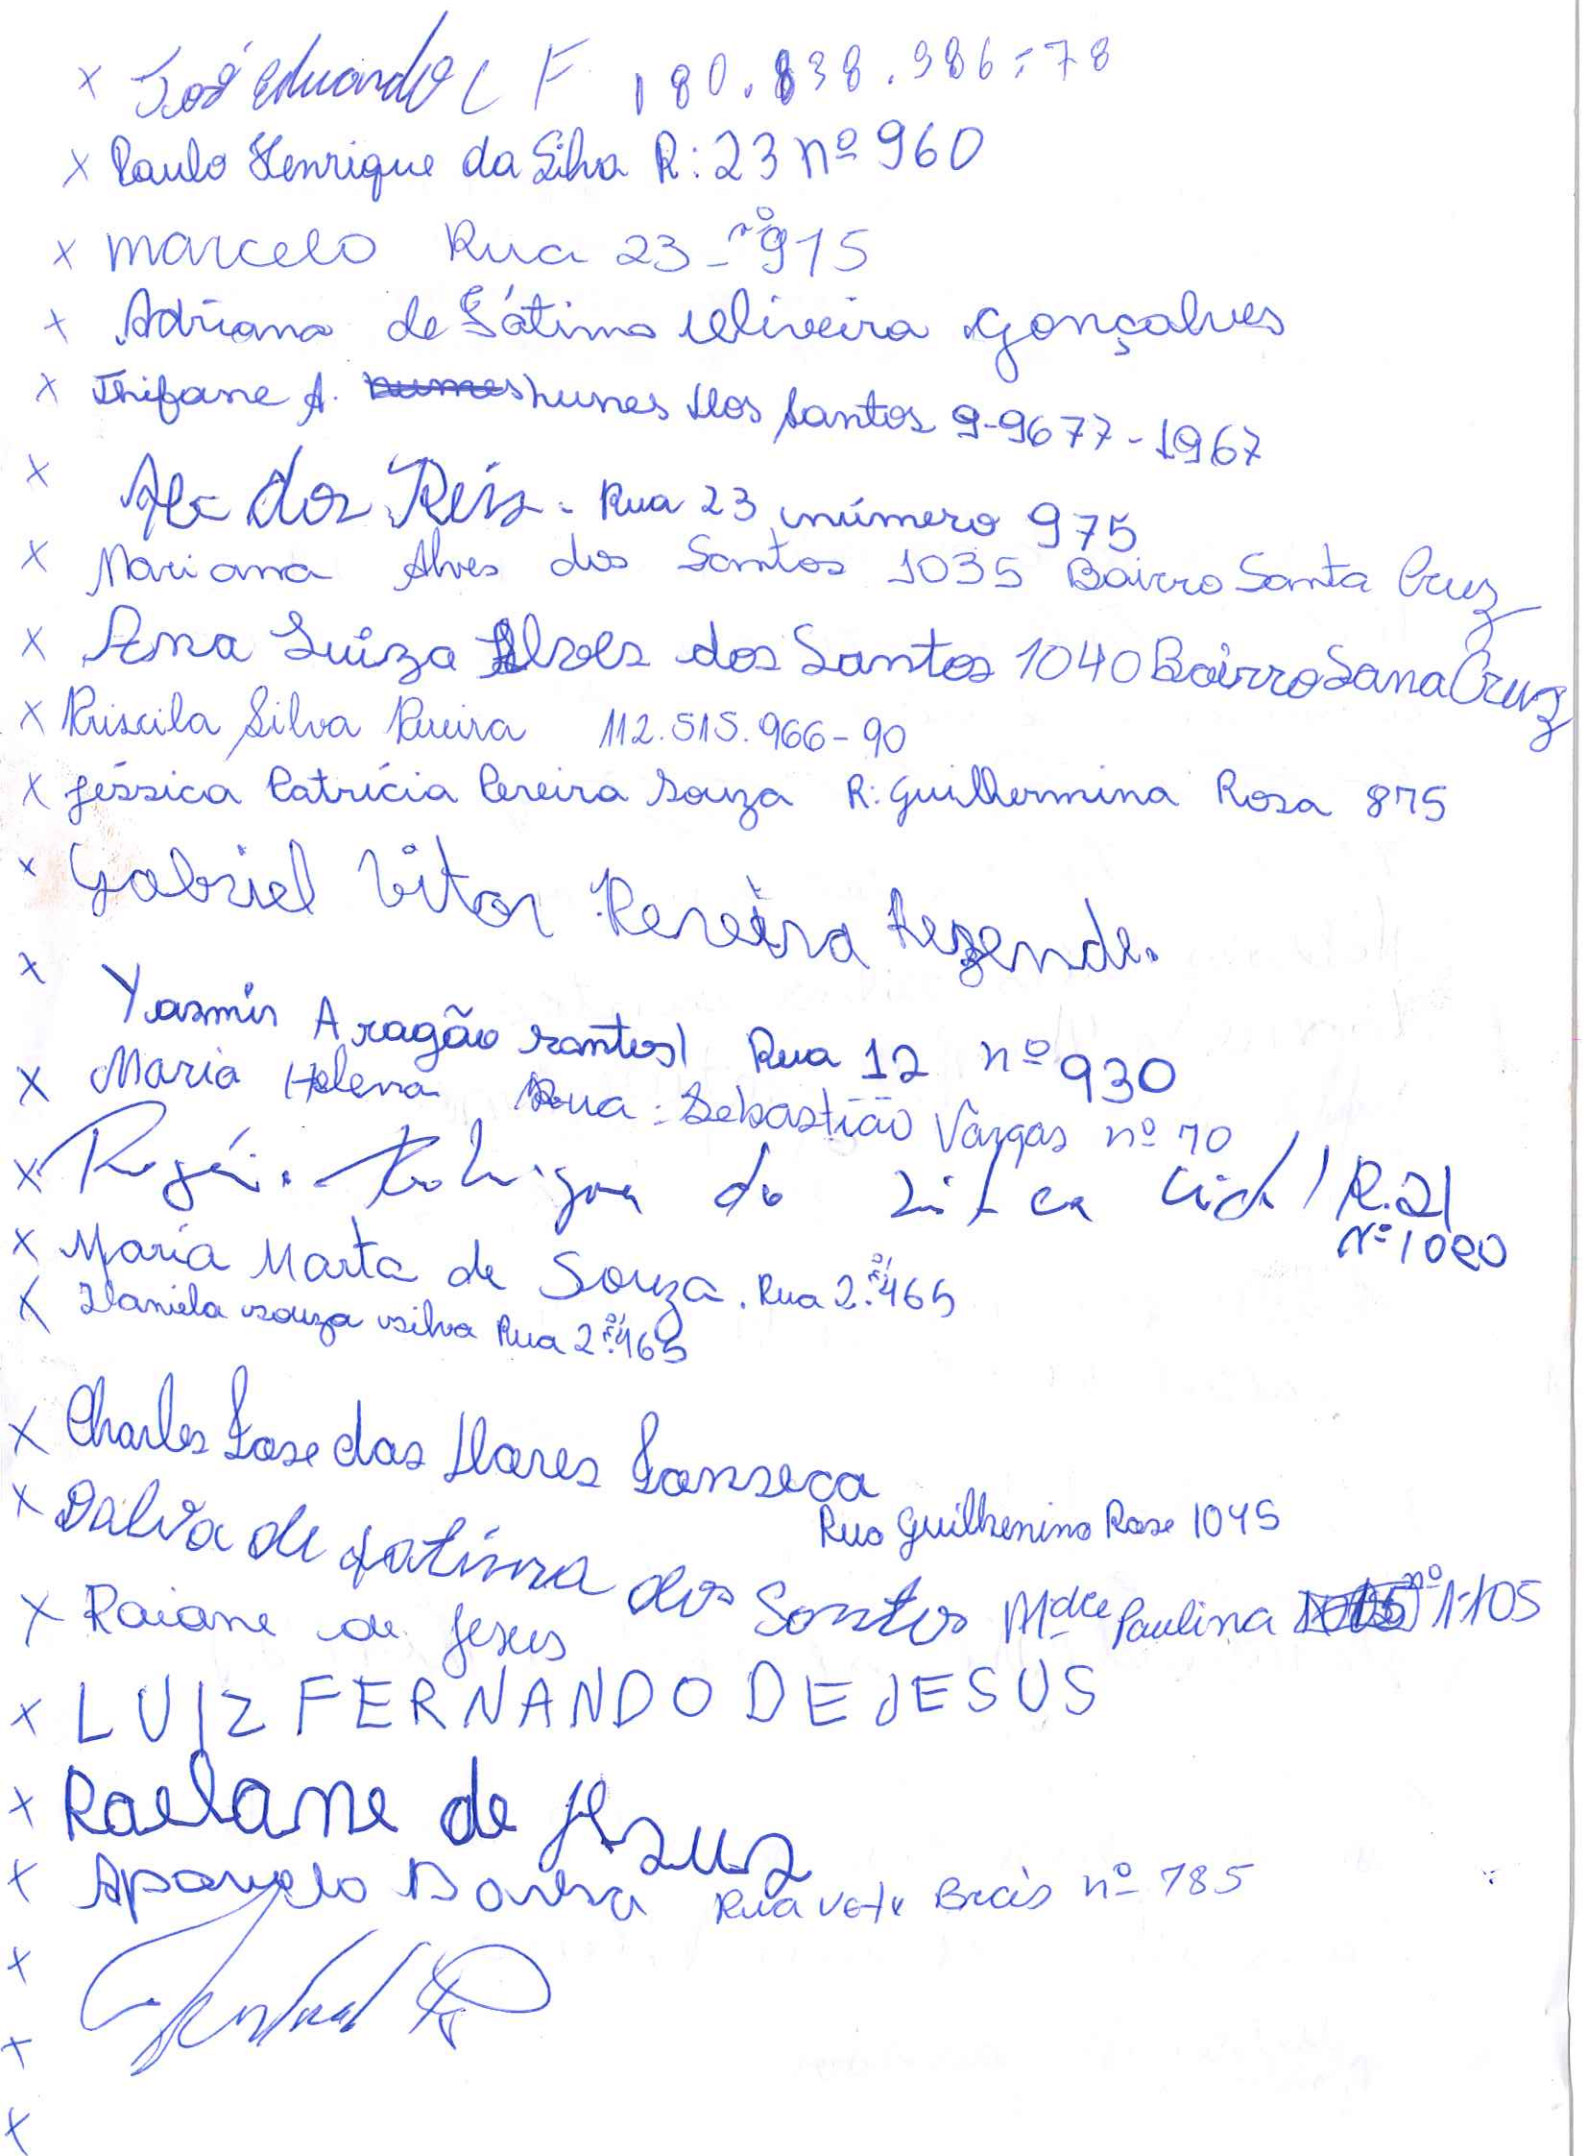 x José Eduardo C F 180.838.986-78
x Paulo Henrique da Silva R: 23 nº 960
x marcelo Rua 23 - nº 915
x Adriana de Fátima Oliveira Gonçalves
x Thifane A. nunes dos santos 9-9677-1967
x dos Reis - Rua 23 número 975
x Mariana Alves dos Santos 1035 Bairro Santa Cruz
x Ana Luiza Alves dos Santos 1040 Bairro Sana Cruz
x Priscila Silva 112.515.966-90
x Jéssica Patrícia Pereira Souza R: Guilhermina Rosa 875
x Gabriel Vitor Pereira Rezende.
x Yasmin Aragão santos Rua 12 nº 930
x Maria Helena Rua: Sebastião Vargas nº 70
x R. 21
nº 1020
x Maria Marta de Souza. Rua 2. nº 465
x Daniela souza silva Rua 2. nº 465
x Charles Jose das Dores Fonseca
Rua Guilhermina Rosa 1045
x Dalva de fatima dos Santos Mdre Paulina nº 1105
x Raiane de Jesus
x LUIZ FERNANDO DE JESUS
x Raelane de Jesus
x nº 785
x
x
x